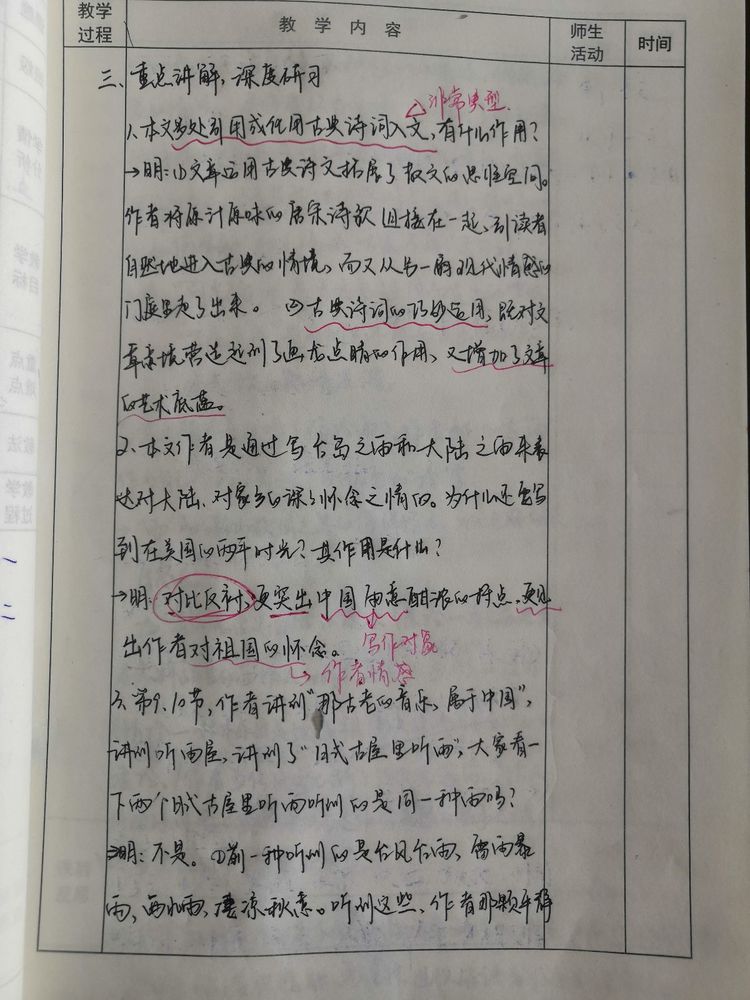 教学过程
教学内容
师生活动
时间
三、重点讲解,深度研习
非常典型
1、本文多处引用或化用古典诗词入文,有什么作用?
→明:(1)文章运用古典诗文拓展了散文的思维空间。
作者将原汁原味的唐宋诗歌组接在一起,引读者
自然地进入古典的情境,而又从另一扇现代情感的
门庭里走了出来。 (2)古典诗词的巧妙运用,既对文
章意境营造起到了画龙点睛的作用,又增加了文章
的艺术底蕴。
2、本文作者是通过写台岛之雨和大陆之雨来表
达对大陆、对家乡的深深怀念之情的。为什么还要写
到在美国的两年时光?其作用是什么?
→明:对比反衬,更突出中国雨意酣浓的特点,更见
出作者对祖国的怀念。 写作对象
↳作者情感
3、第9、10节,作者讲到“那古老的音乐,属于中国”,
讲到听雨屋,讲到了“日式古屋里听雨”,大家看一
下两个日式古屋里听雨听到的是同一种雨吗?
→明:不是。①前一种听到的是台风台雨,雷雨暴
雨,西北雨,凄凉秋意。听到这些,作者那颗平静
学情分析
教学目标
重点难点
教法
教学过程
一
二